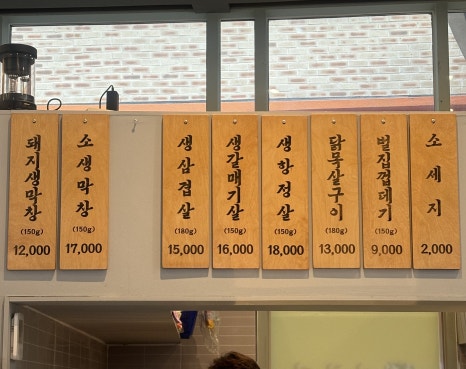 돼지생막창
(150g)
12,000
소생막창
(150g)
17,000
생삼겹살
(180g)
15,000
생갈매기살
(150g)
16,000
생항정살
(150g)
18,000
닭목살구이
(180g)
13,000
벌집껍데기
(150g)
9,000
소세지
2,000